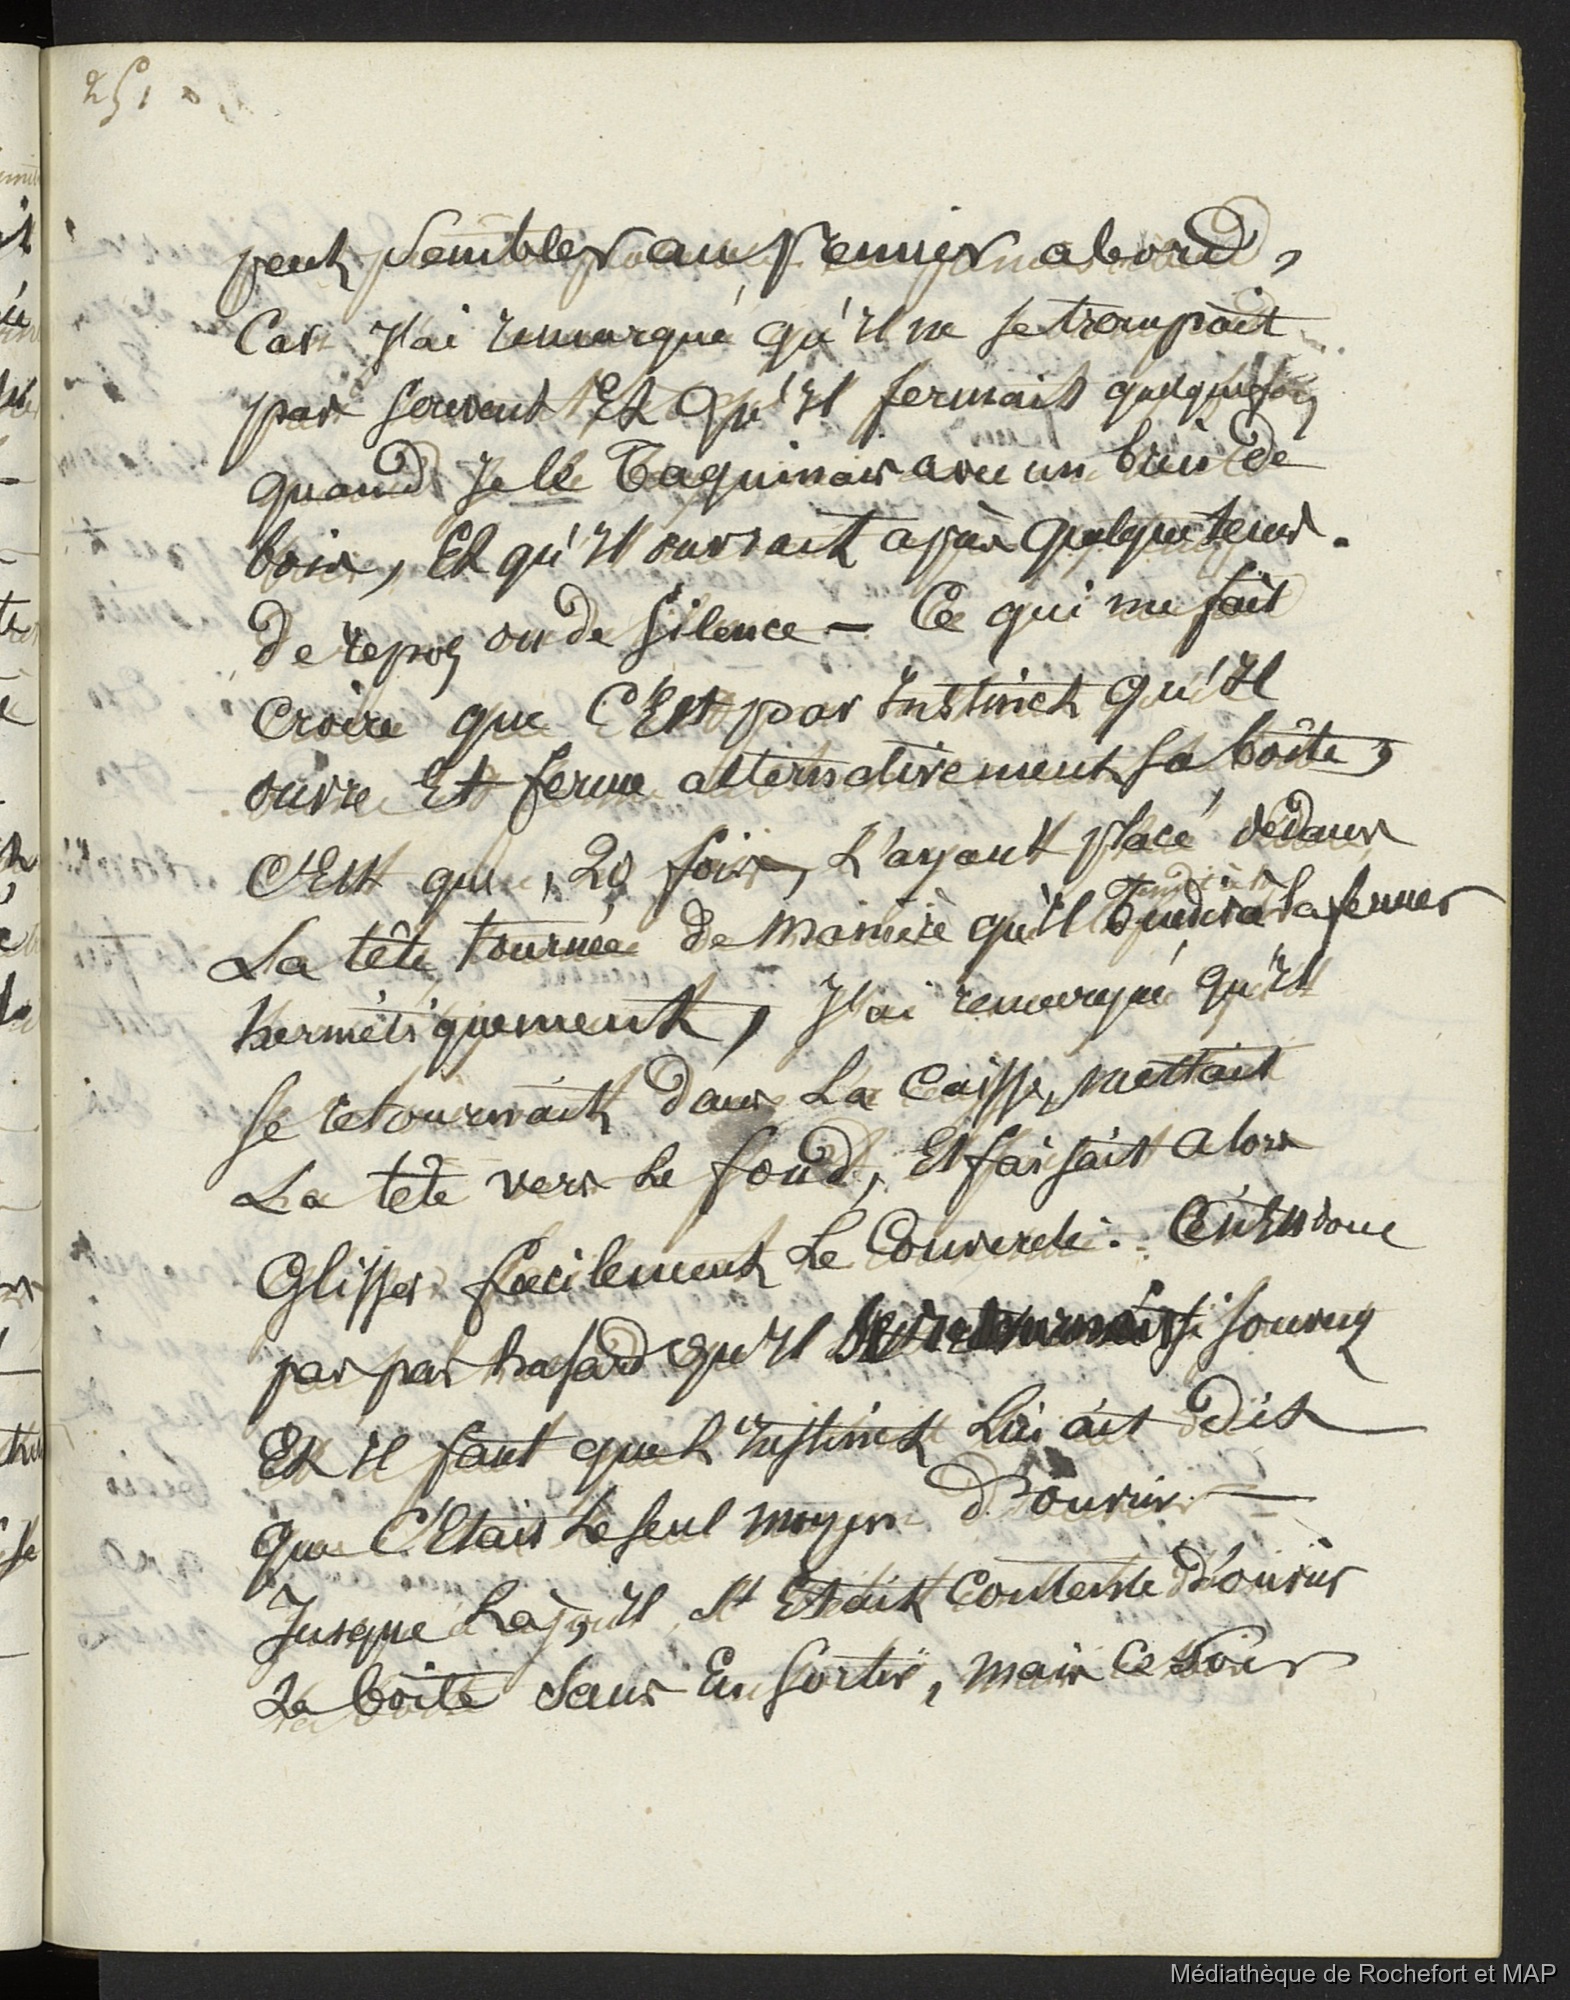 251
peut sembler au premier abord,
Car J'ai remarqué qu'Il ne se trompait
pas souvent Et Qu'Il fermait quelquefois
quand Je le Taquinais avec un brin de
bois, Et qu'Il ouvrait après quelque tems
de repos ou de silence — Ce qui me fait
croire que C'Est par Instinct qu'Il
ouvre Et ferme alternativement sa boîte,
C'Est que, 20 fois, L'ayant placé dedans
La tête tournée de manière qu'Il tendit à la fermer
hermétiquement, J'ai remarqué qu'Il
se retournait dans La Caisse, mettait
La tête vers Le fond, Et faisait alors
Glisser facilement Le Couvercle. Ce n'Est donc
pas par hasard qu'Il souvent
Et Il faut que L'Instinct Lui ait Dit
que C'Etait Le seul moyen D'ouvrir —
Jusque Là, Il s'Etait Contenté D'ouvrir
La boîte sans En sortir, mais Ce soir
Médiathèque de Rochefort et MAP